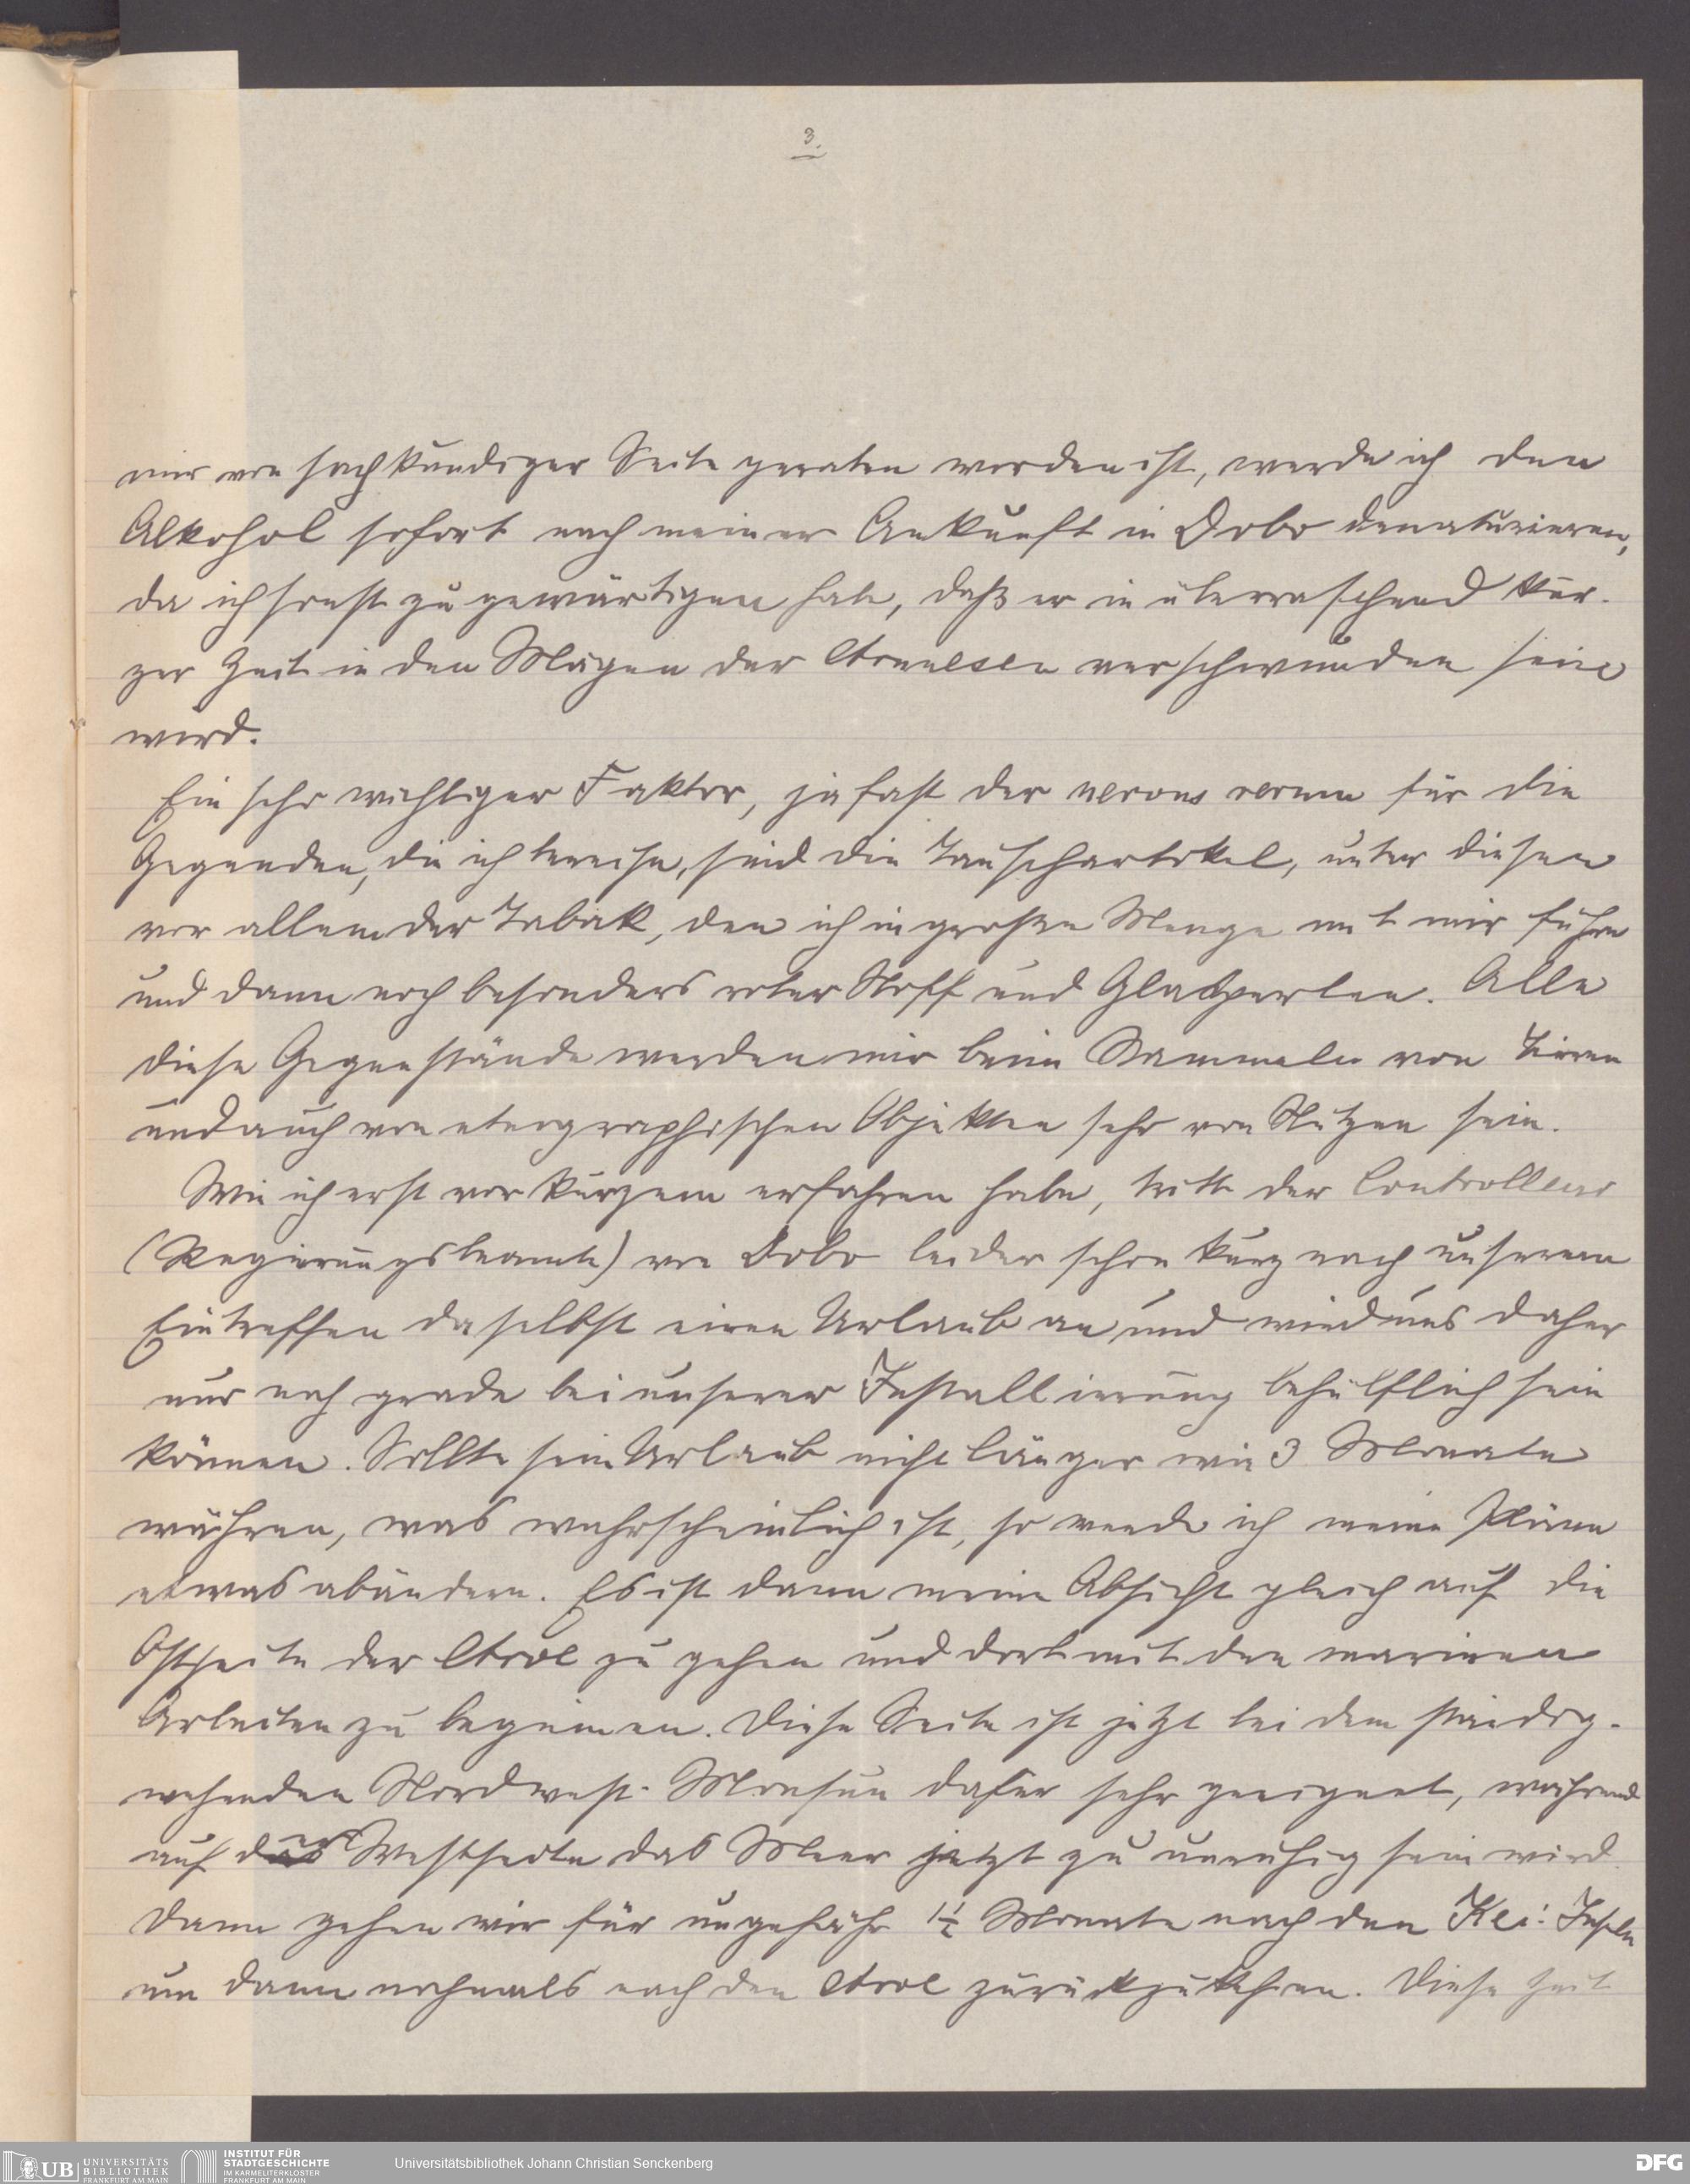 3.
mir von sachkundiger Seite geraten worden ist, werde ich den
Alkohol sofort nach meiner Ankunft in Dobo denaturieren,
da ich sonst zu gewärtigen habe, daß er in überraschend kur-
zer Zeit in den Mägen der Aruesen verschwunden sein
wird.
Ein sehr wichtiger Faktor, ja fast der nervus rerum für die
Gegenden, die ich bereise, sind die Tauschartikel, unter diesen
vor allem der Tabak, den ich in großer Menge mit mir führe
und dann noch besonders roter Stoff und Glasperlen. Alle
diese Gegenstände werden mir beim Sammeln von Tieren
und auch von etnographischen Objekten sehr von Nutzen sein.
Wie ich erst vor kurzem erfahren habe, tritt der Controlleur
(Regierungsbeamte) von Dobo leider schon kurz nach unserem
Eintreffen daselbst einen Urlaub an und wird uns daher
nur noch grade bei unserer Installierung behülflich sein
können. Sollte sein Urlaub nicht länger wie 3 Monate
währen, was wahrscheinlich ist, so werde ich meine Pläne
etwas abändern. Es ist dann meine Absicht gleich auf die
Ostseite der Aroe zu gehen und dort mit den marinen
Arbeiten zu beginnen. Diese Seite ist jetzt bei dem ständig-
wehenden Nordwest-Monsun dafür sehr geeignet, während
auf der Westseite das Meer jetzt zu unruhig sein wird.
Dann gehen wir für ungefähr 1½ Monate nach den Kei-Inseln
um dann nochmals nach den Aroe zurückzukehren. Diese Zeit
UB UNIVERSITÄTS
BIBLIOTHEK
FRANKFURT AM MAIN
INSTITUT FÜR
STADTGESCHICHTE
IM KARMELITERKLOSTER
FRANKFURT AM MAIN
Universitätsbibliothek Johann Christian Senckenberg
DFG